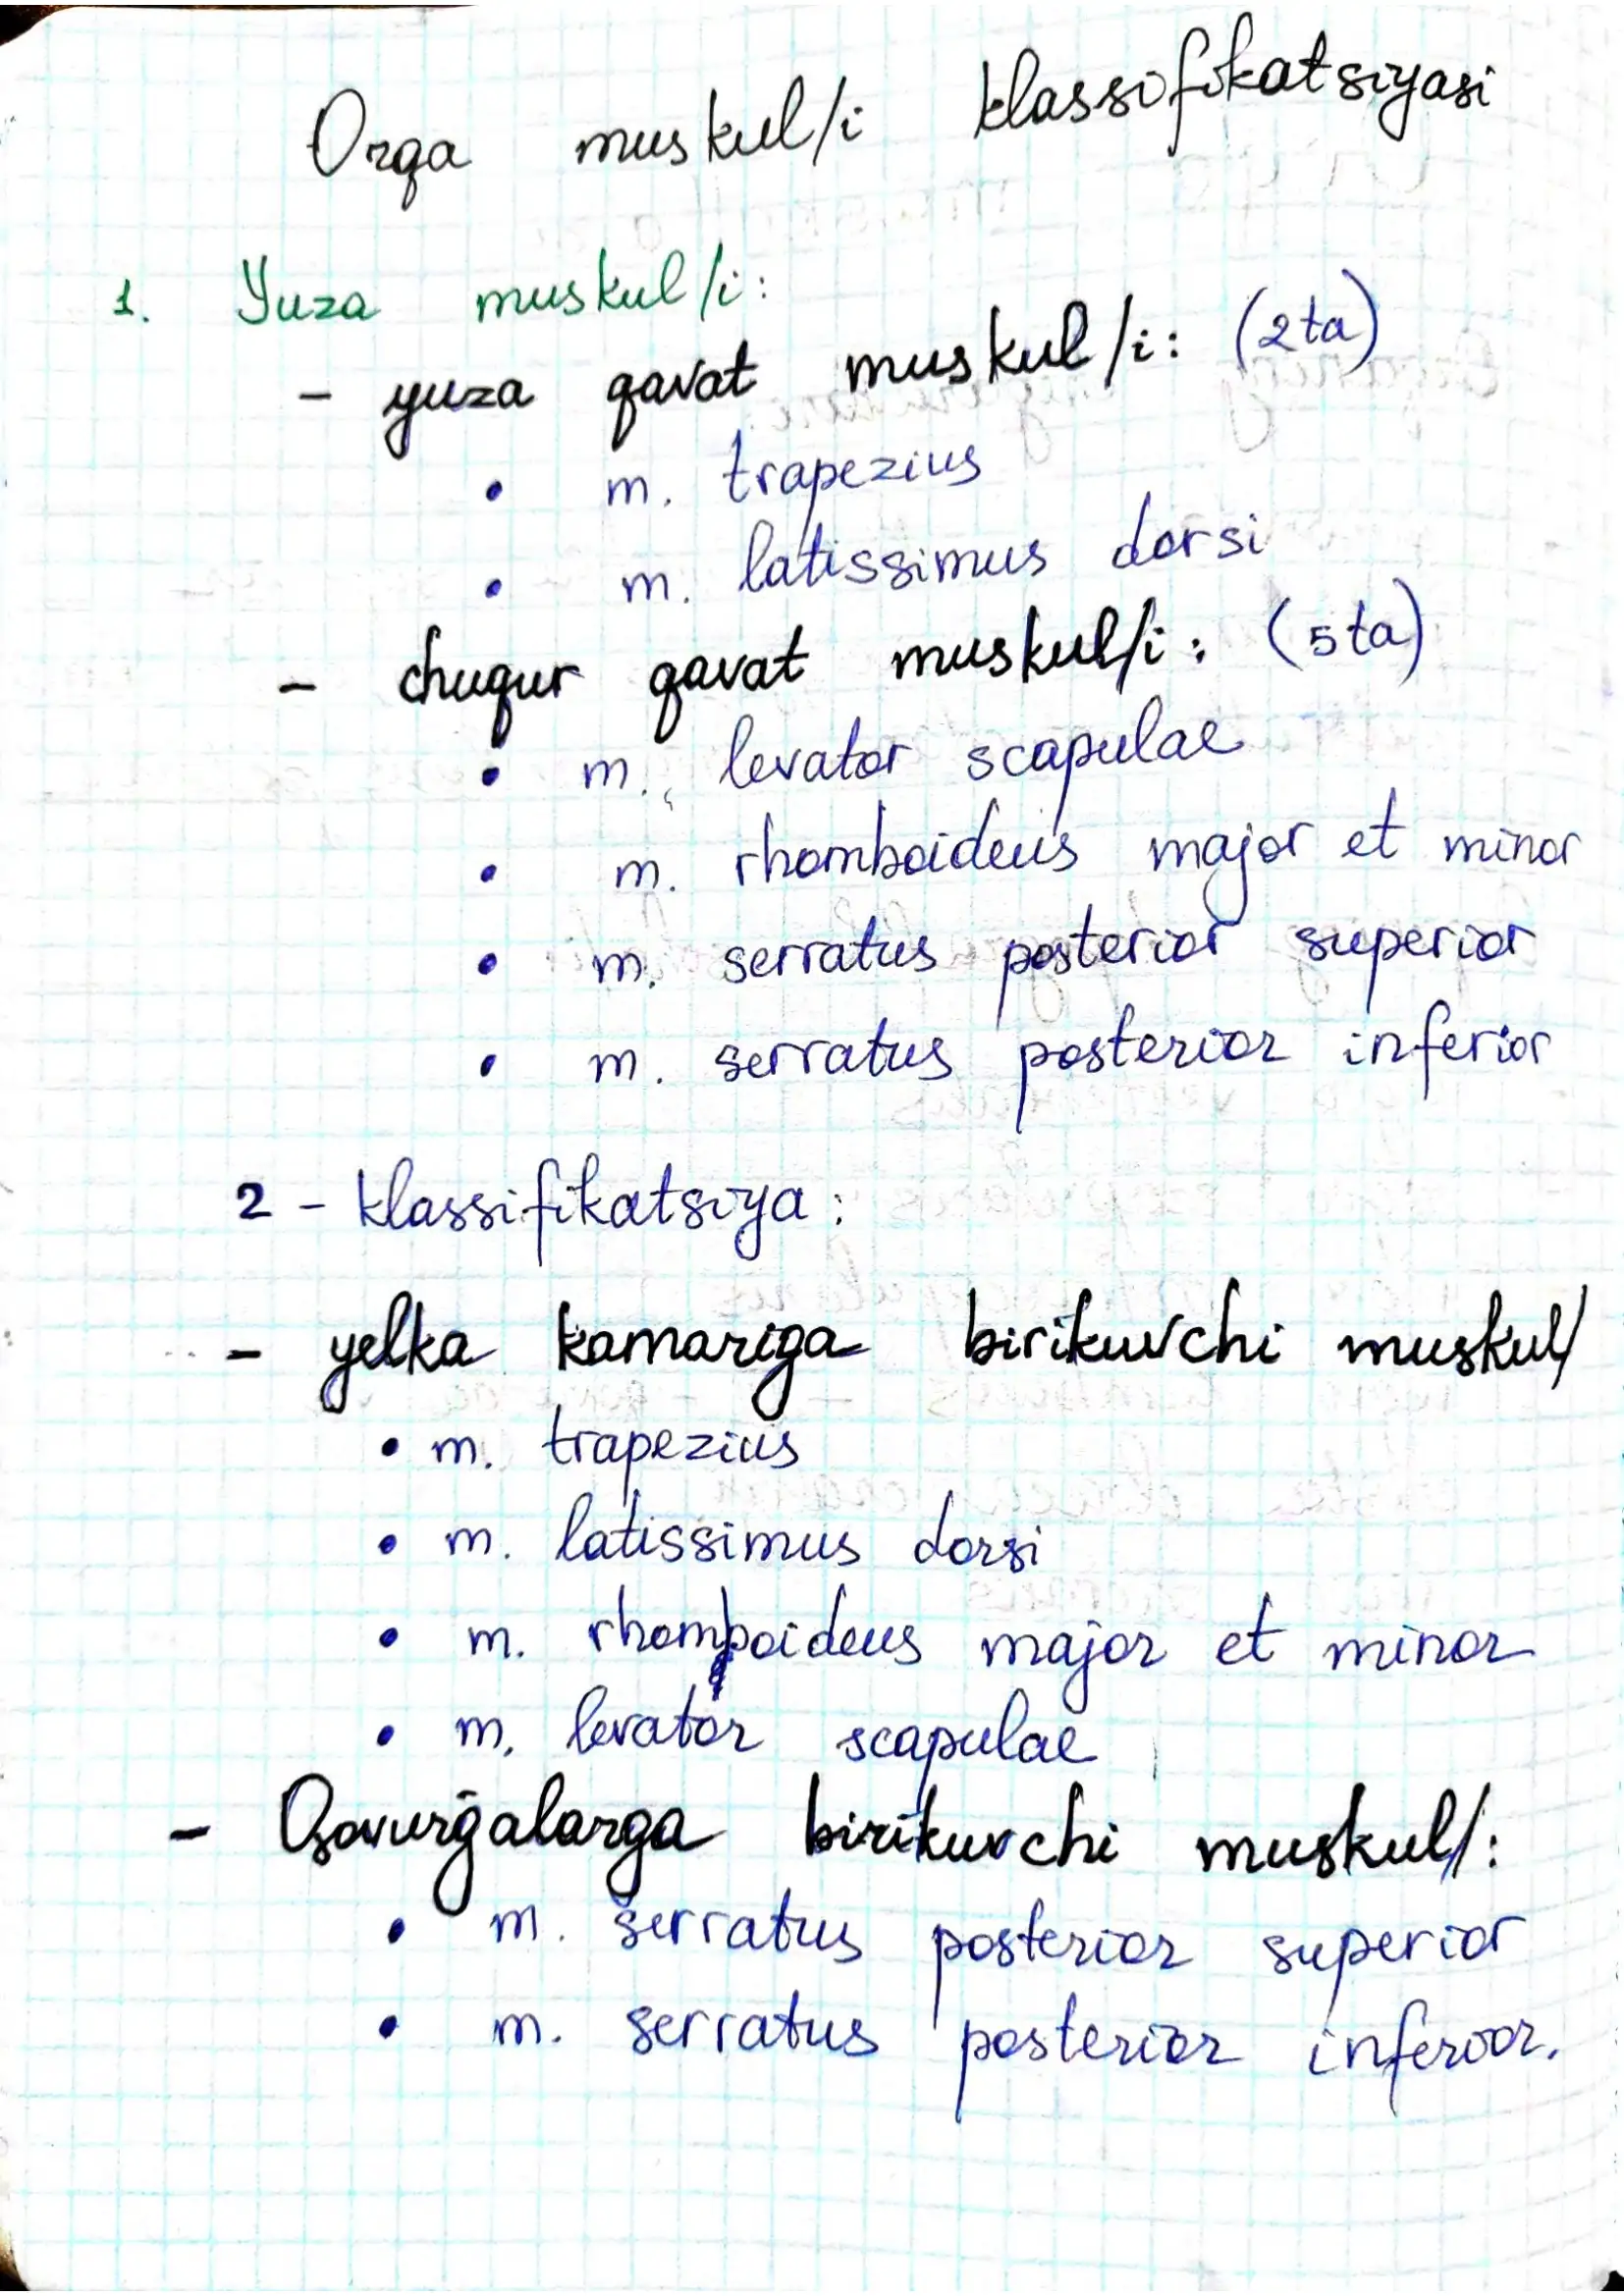 Orqa muskul/i klassifikatsiyasi
1. Yuza muskul/i:
- yuza qavat muskul/i: (2 ta)
• m. trapezius
• m. latissimus dorsi
- chuqur qavat muskul/i: (5 ta)
• m. levator scapulae
• m. rhomboideus major et minor
• m. serratus posterior superior
• m. serratus posterior inferior
2 - klassifikatsiya:
- yelka kamariga birikuvchi muskul/
• m. trapezius
• m. latissimus dorsi
• m. rhompoideus major et minor
• m. levator scapulae
- Qovurğalarga birikuvchi muskul/:
• m. serratus posterior superior
• m. serratus posterior inferior.